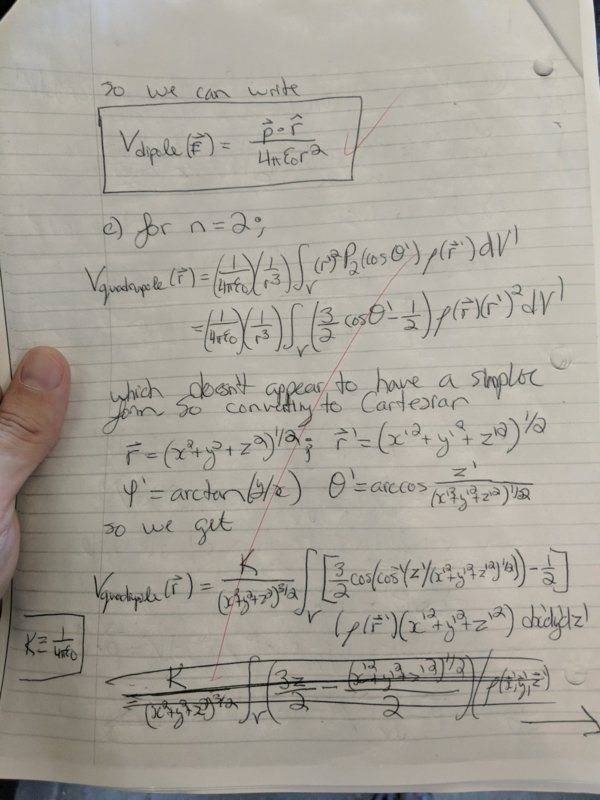 so we can write
V_dipole(r⃗) = p⃗ • r̂ / 4πε₀r²
c) for n = 2;
V_quadrupole(r⃗) = (1/4πε₀)(1/r³) ∫_V (r')² P₂(cosθ') ρ(r⃗') dV'
= (1/4πε₀)(1/r³) ∫_V (3/2 cosθ' - 1/2) ρ(r⃗')(r')² dV'
which doesn't appear to have a simpler
form so converting to Cartesian
r⃗ = (x²+y²+z²)^1/2; r⃗' = (x'²+y'²+z'²)^1/2
φ' = arctan(y/x) θ' = arccos z'/(x'²+y'²+z'²)^1/2
so we get
V_quadrupole(r⃗) = K/(x²+y²+z²)^3/2 ∫_V [3/2 cos(cos⁻¹(z'/(x'²+y'²+z'²)^1/2)) - 1/2]
(ρ(r⃗')(x'²+y'²+z'²) dx'dy'dz'
K ≡ 1/4πε₀
= K/(x²+y²+z²)^3/2 ∫_V (3z/2 - (x'²+y'²+z'²)^1/2/2) ρ(x',y',z')